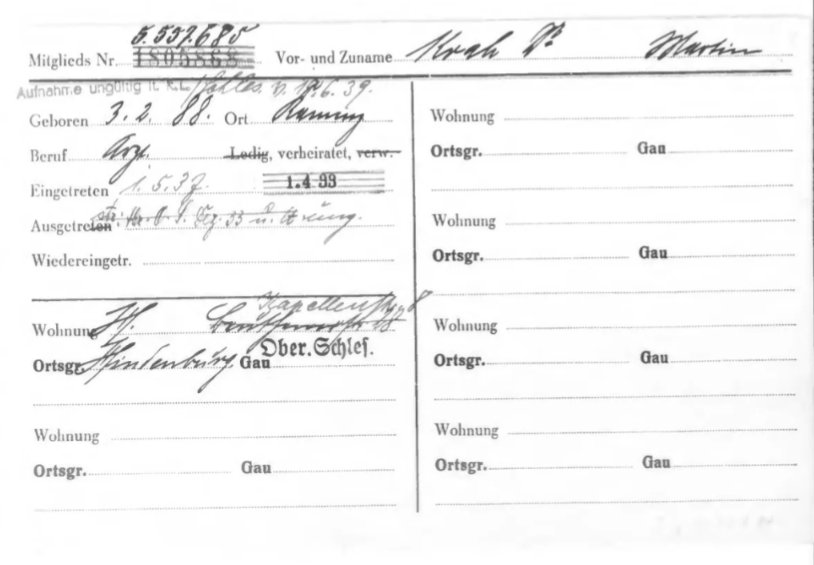 5.537.680
Mitglieds Nr. 1805868 Vor- und Zuname Krah Dr. Martin
Aufnahme ungültig lt. K.L. Schles. v. 19.6.39.
Geboren 3. 2. 88. Ort
Beruf Arzt. Ledig, verheiratet, verw.
Eingetreten 1.5.37. 1.4 33
Ausgetreten
Wiedereingetr.
Wohnung
Ortsgr. Hindenburg. Gau Ober.Schles.
Wohnung
Ortsgr. Gau
Wohnung
Ortsgr. Gau
Wohnung
Ortsgr. Gau
Wohnung
Ortsgr. Gau
Wohnung
Ortsgr. Gau